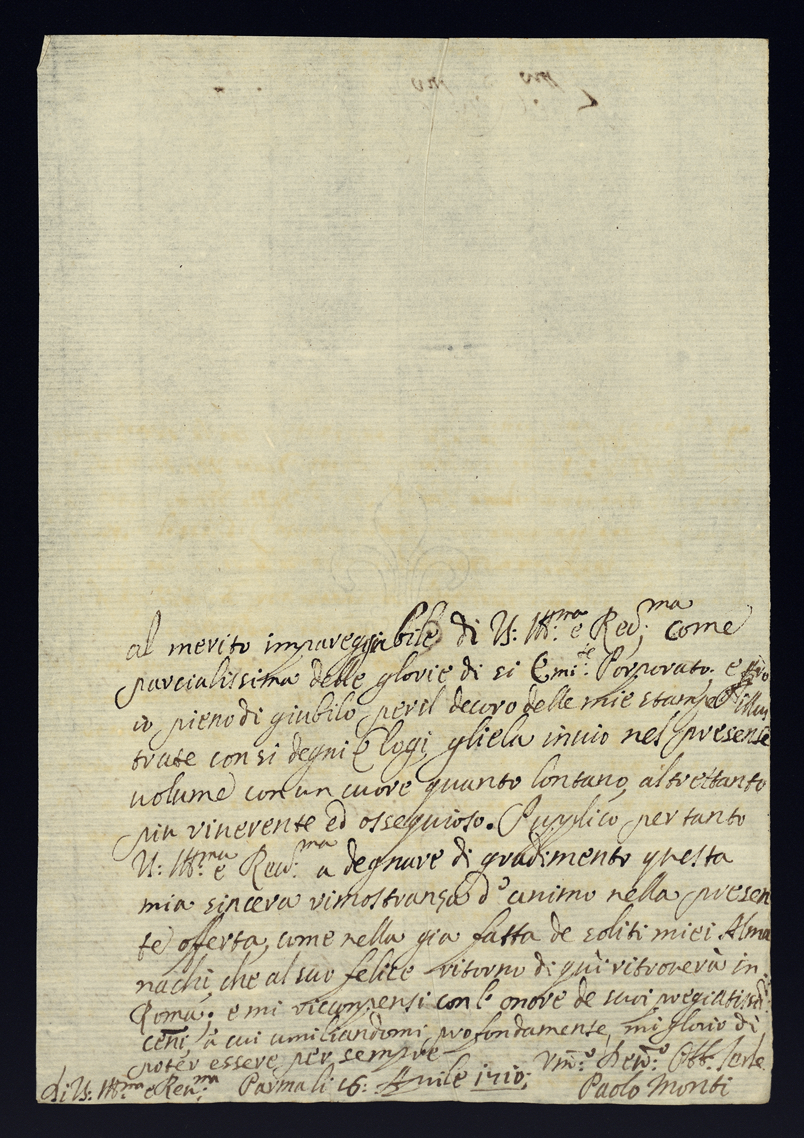 al merito impareggiabile di V: Ill:ma e Rev:ma come
parcialissima delle glorie di si Emi:te Porporato, e
io pieno di giubilo per il decoro delle mie stampe illus
trate con si degni Elogi, gliela inuio nel presente
volume con un cuore quanto lontano, altrettanto
piu riuerente ed ossequioso. Supplico per tanto
V: Ill:ma e Reu:ma a degnare di gradimento questa
mia sincera rimostranza d'animo nella presen
te offerta, come nella gia fatta de soliti miei Alma
nachi, che al suo felice ritorno di qui ritrouerà in
Roma: e mi ricompensi con l'onore de suoi pregiatis:mi
cenni, à cui umiliandomi profondamente, mi glorio di
poter essere per sempre
Di V: Ill:ma e Reu:ma Parma li 16: Aprile 1710; Vm:o Deu:mo Obb: Serre
Paolo Monti